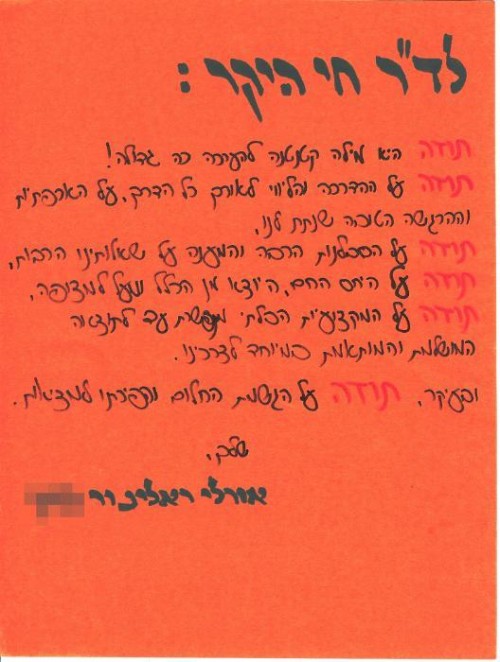 לד"ר חי היקר :
תודה היא מילה קטנטנה להערכה כה גדולה!
תודה על ההדרכה והליווי לאורך כל הדרך, על האכפתיות
וההרגשה הטובה שנתת לנו,
תודה על הסבלנות הרבה והמענה על שאלותינו הרבות,
תודה על היחס החם, היוצא מן הכלל ומעל למצופה,
תודה על המקצועיות הבלתי מתפשרת עד לתוצאה
המושלמת והמותאמת במיוחד לצרכינו.
ובעיקר, תודה על הגשמת החלום והפיכתו למציאות.
שלכם,